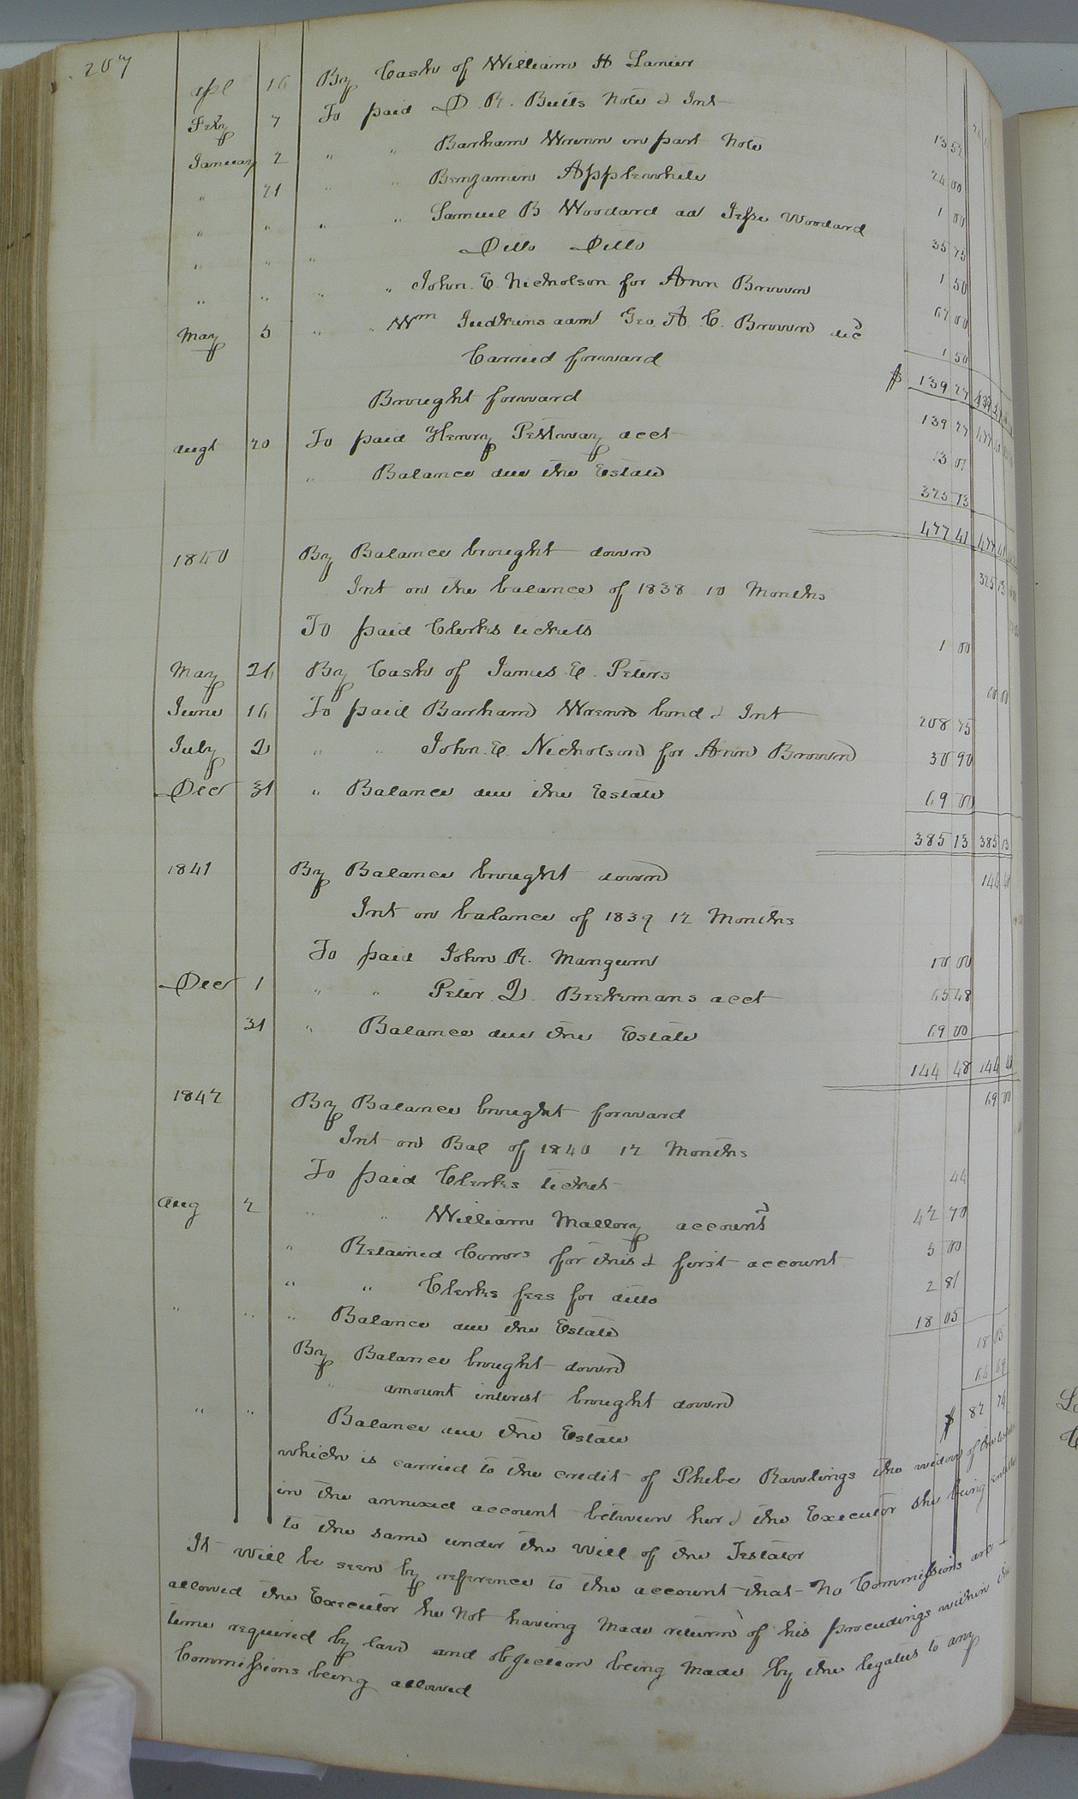 207
apl 16 By Cash of William H Lanier
Feby 7 To paid D. R. Butts Note & Int 13 52
January 2 " " Barham Wrenn in part Note 24 00
" 21 " " Benjamin Applewhite 1 00
" " " " Samuel B Woodard ad Jesse Woodard 35 75
" " " Ditto Ditto 1 50
" " " " John E. Nicholson for Ann Brown
May 5 " " Wm Judkins adm Geo. A. C. Brown decd 1 50
Carried forward $ 139 27
Brought forward 139 27
augt 20 To paid Henry Pettway acct 13 01
" Balance due the Estate 325 13
477 41 477 41
1840 By Balance brought down 325 13
Int on the balance of 1838 10 Months
To paid Clerks tickets 1 00
May 26 By Cash of James E. Peters 60 00
June 16 To paid Barham Wrenn bond & Int 208 75
July 2 " " John E. Nicholson for Ann Brown 30 90
Dec 31 " Balance due the Estate
385 13 385 13
1841 By Balance brought down
Int on balance of 1839 12 Months
To paid John R. Mangum 10 00
Dec 1 " " Peter D. Beekmans acct 65 48
31 " Balance due the Estate 69 00
144 48 144 48
1842 By Balance brought forward 69 00
Int on Bal of 1840 12 Months
To paid Clerks ticket 44
Aug 2 " " William Mallory account 42 70
" Retained Comrs for this & first account 5 00
" " Clerks fees for ditto 2 81
" " " Balance due the Estate 18 05
By Balance brought down 18 05
" amount interest brought down 64 69
" " Balance due the Estate $ 82 74
which is carried to the credit of Phebe Rawlings the widow of the testator
in the annexed account between her & the Executor she being entitled
to the same under the will of the Testator
It will be seen by reference to the account that no Commissions are
allowed the Executor he Not having Made return of his proceedings within the
time required by law and objection being Made by the legatees to any
Commissions being allowed